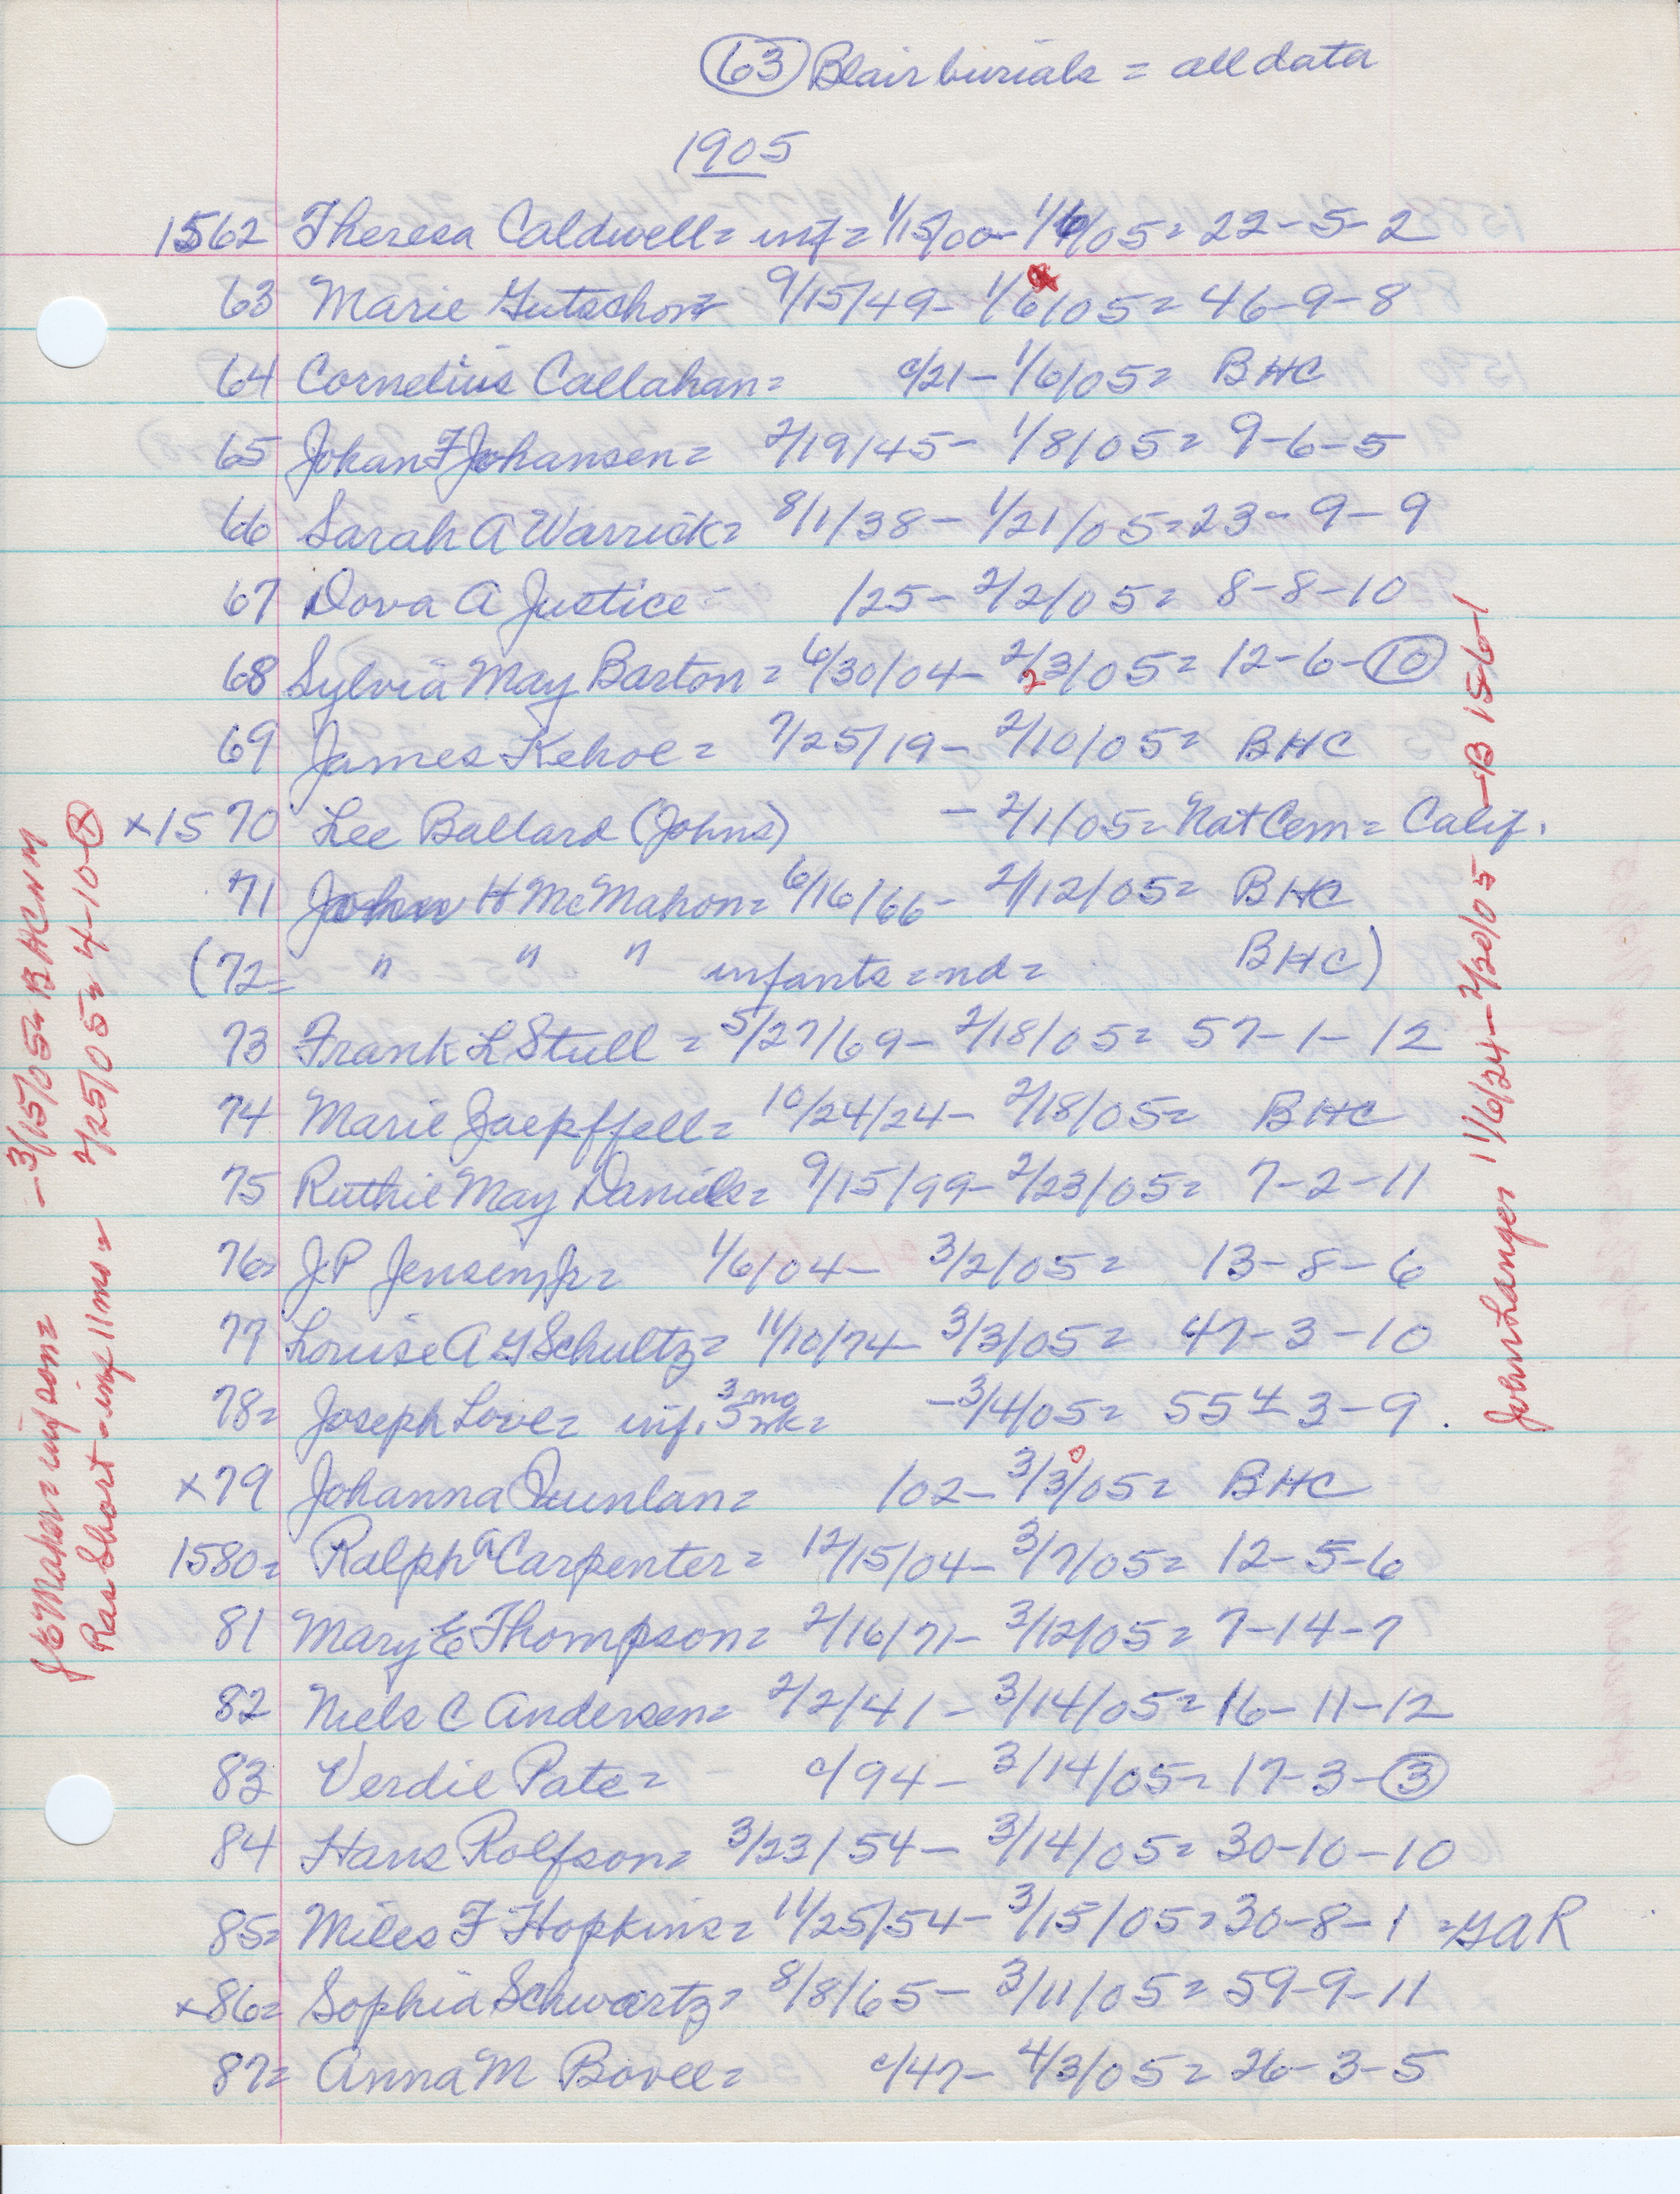 63 Blair burials = all data
1905
1562 Theresa Caldwell = inf = 1/15/00 - 1/6/05 = 22-5-2
63 Marie Gutschow = 9/15/49 - 1/6/05 = 46-9-8
64 Cornelius Callahan = c/21 - 1/6/05 = BHC
65 Johan F Johansen = 2/19/45 - 1/8/05 = 9-6-5
66 Sarah A Warrick = 8/1/38 - 1/21/05 = 23-9-9
67 Dova A Justice - /25 - 2/2/05 = 8-8-10
68 Sylvia May Barton = 6/30/04 - 2/3/05 = 12-6-10
2
69 James Kehoe = 7/25/19 - 2/10/05 = BHC
x1570 Lee Ballard (Johns) - 2/1/05 = Nat Cem = Calif.
71 John H McMahon = 6/16/66 - 2/12/05 = BHC
(72 = " " " infants = nd = BHC)
73 Frank L Stull = 5/27/69 - 2/18/05 = 57-1-12
74 Marie Zaepffell = 10/24/24 - 2/18/05 = BHC
75 Ruthie May Daniels = 9/15/99 - 2/23/05 = 7-2-11
76 = J.P Jensen, Jr = 1/6/04 - 3/2/05 = 13-8-6
77 Louise A G Schultz = 11/10/74 - 3/3/05 = 47-3-10
78 = Joseph Love = inf. 3 mo 5 wk = - 3/4/05 = 55 ± 3-9.
x79 Johanna Quinlan = /02 - 3/30/05 = BHC
1580 = Ralph A Carpenter = 12/15/04 - 3/7/05 = 12-5-6
81 Mary E Thompson = 2/16/71 - 3/12/05 = 7-14-7
82 Niels C Andersen = 2/2/41 - 3/14/05 = 16-11-12
83 Verdie Pate = c/94 - 3/14/05 = 17-3-3
84 Hans Rolfson = 3/23/54 - 3/14/05 = 30-10-10
85 = Miles F Hopkins = 11/25/54 - 3/15/05 = 30-8-1 = GAR
x86 = Sophia Schwartz = 8/8/65 - 3/11/05 = 59-9-11
87 = Anna M Bovee = c/47 - 4/3/05 = 26-3-5
J E Maher = inf son = - 3/15/05 = BHC NM
Ras Short - inf 11 mo = 2/25/05 = 4-10-
John Langer 11/6/24 - 2/20/05 - B 15-6-1